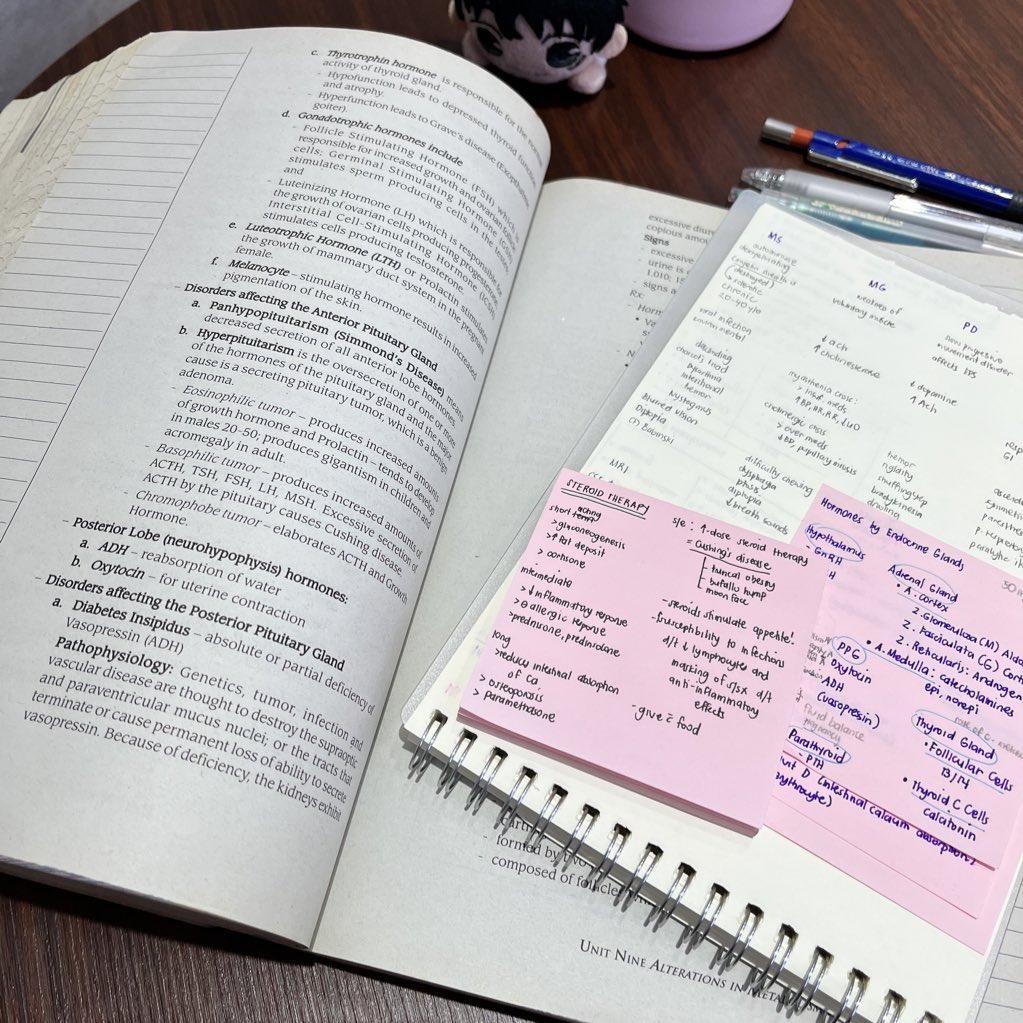 c. Thyrotrophin hormone is responsible for the
activity of thyroid gland.
- Hypofunction leads to depressed thyroid function
and atrophy.
- Hyperfunction leads to Grave's disease (Exophthalmic
goiter).
d. Gonadotrophic hormones include
- Follicle Stimulating Hormone (FSH) which is
responsible for increased growth and ovarian follicle
cells; Germinal Stimulating Hormone
stimulates sperm producing cells in the testes,
and
- Luteinizing Hormone (LH) which is responsible for
the growth of ovarian cells producing progesterone
Interstitial Cell-Stimulating Hormone (ICSH)
stimulates cells producing testosterone.
e. Luteotrophic Hormone (LTH) or Prolactin stimulates
the growth of mammary duct system in the pregnant
female.
f. Melanocyte – stimulating hormone results in increased
pigmentation of the skin.
- Disorders affecting the Anterior Pituitary Gland
a. Panhypopituitarism (Simmond's Disease) means
decreased secretion of all anterior lobe hormones
b. Hyperpituitarism is the oversecretion of one or more
of the hormones of the pituitary gland and the major
cause is a secreting pituitary tumor, which is a benign
adenoma.
- Eosinophilic tumor – produces increased amounts
of growth hormone and Prolactin – tends to develop
in males 20-50; produces gigantism in children and
acromegaly in adult.
- Basophilic tumor – produces increased amounts of
ACTH, TSH, FSH, LH, MSH. Excessive secretion of
ACTH by the pituitary causes Cushing disease.
- Chromophobe tumor – elaborates ACTH and Growth
Hormone.
- Posterior Lobe (neurohypophysis) hormones:
a. ADH – reabsorption of water
b. Oxytocin – for uterine contraction
- Disorders affecting the Posterior Pituitary Gland
a. Diabetes Insipidus – absolute or partial deficiency of
Vasopressin (ADH)
Pathophysiology: Genetics, tumor, infection and
vascular disease are thought to destroy the supraoptic
and paraventricular mucus nuclei; or the tracts that
terminate or cause permanent loss of ability to secrete
vasopressin. Because of deficiency, the kidneys exhibit
excessive diur
copious amou
Signs
- excessive
urine is
1.010; 15
- signs a
Rx:
Horm
MS
autoimmune
demyelinating
destroyed)
chronic
20-40 y/o
viral infection
environmental
charcot's triad
intentional
tremor
Nystagmus
Blurred vision
Diplopia
(+) Babinski
MRI
MG
weakness of
voluntary muscle
↓ ach
↑ cholinesterase
myasthenia crisis:
> insuf. meds
↑ BP, HR, RR, ↓ UO
cholinergic crisis
> over meds
↓ BP, pupillary miosis
difficulty chewing
dysphagia
ptosis
diplopia
↓ breath sounds
PD
slow progressive
movement disorder
affects EPS
↓ dopamine
↑ Ach
tremor
rigidity
shuffling step
bradykinesia
drooling
STEROID THERAPY
short acting
> gluconeogenesis
> ↑ fat deposit
> cortisone
intermediate
> ↓ inflammatory response
> ⊖ allergic response
> prednisone, prednisolone
long
> reduce intestinal absorption
of Ca
> osteoporosis
> Paramethasone
s/e: ↑-dose steroid therapy
= Cushing's disease
truncal obesity
buffalo hump
moon face
- steroids stimulate appetite!
- susceptibility to infections
d/t ↓ lymphocyte and
masking of s/sx d/t
anti-inflammatory
effects
- give c̄ food
Hormones by Endocrine Glands
Hypothalamus
- GnRH
PPG
Oxytocin
ADH
(vasopressin)
fluid balance
Parathyroid
- PTH
Adrenal Gland
• A. Cortex
1. Glomerulosa (M) Aldo
2. Fasciculata (G) Cort
2. Reticularis: Androgen
• A. Medulla: Catecholamines
epi, norepi
Thyroid Gland
• Follicular Cells
T3/T4
• Thyroid C Cells
Calcitonin
vit D (intestinal calcium absorption)
erythrocyte)
- formed by two
- composed of follicle
UNIT NINE ALTERATIONS IN METABOLISM